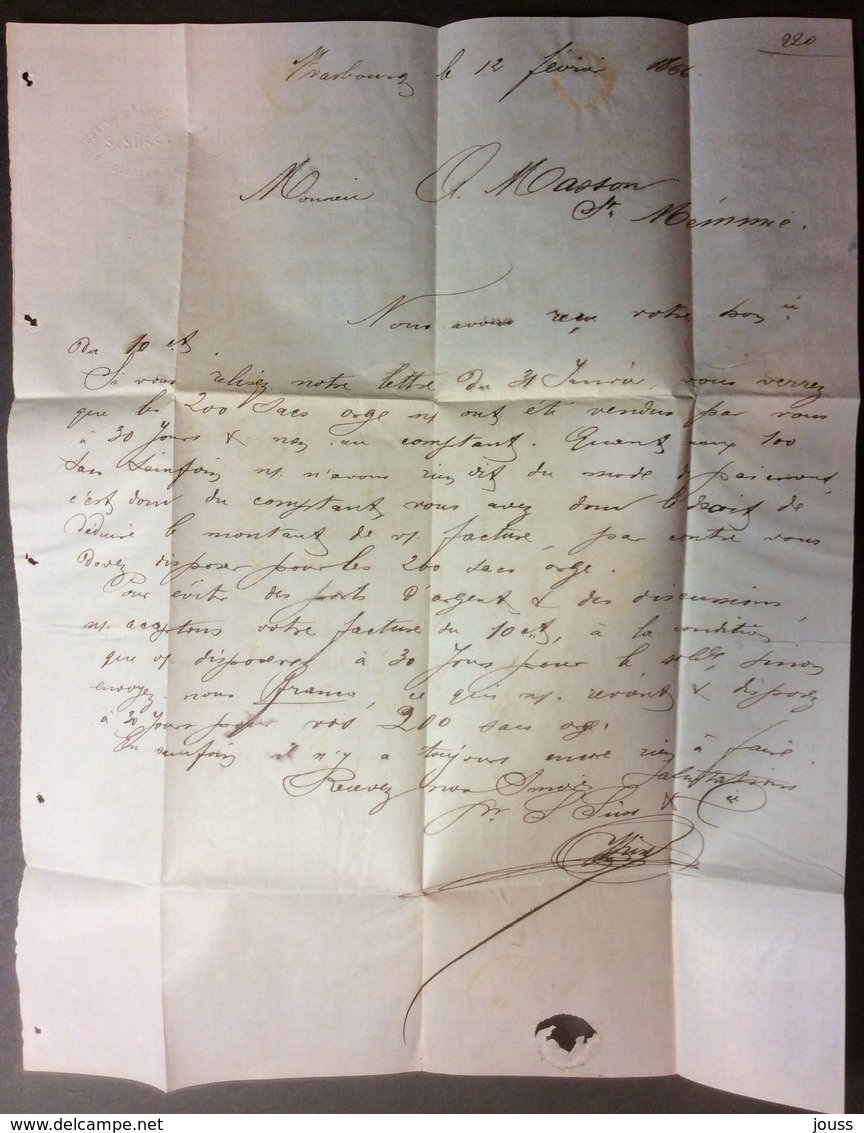 220
Strasbourg le 12 février 1866.
S. SÜSS
Monsieur A. Masson
St. Memmie.
Nous avons reçu votre hon ée
du 10 ct.
Si vous relisez notre lettre du 31 Janvier, vous verrez
que les 200 Sacs orge n/ ont été vendus par vous
à 30 Jours & non au comptant. Quant aux 100
Sacs Sainfoin n/. n'avons rien dit du mode de paiement,
c'est donc du comptant, vous avez donc le droit de
déduire le montant de v/. facture, par contre vous
devez disposer pour les 200 sacs orge.
Pour éviter des ports d'argent & des discussions,
n/. acceptons votre facture du 10 ct, à la condition
que v/. disposerez à 30 Jours pour le solde, sinon
envoyez nous franco, ce qui n/. revient & disposez
à 30 Jours pour vos 200 sacs orge.
En sainfoin il n'y a toujours encore rien à faire.
Recevez nos Sincères Salutations
pr. S. Süss & Cie
delcampe.net
jouss